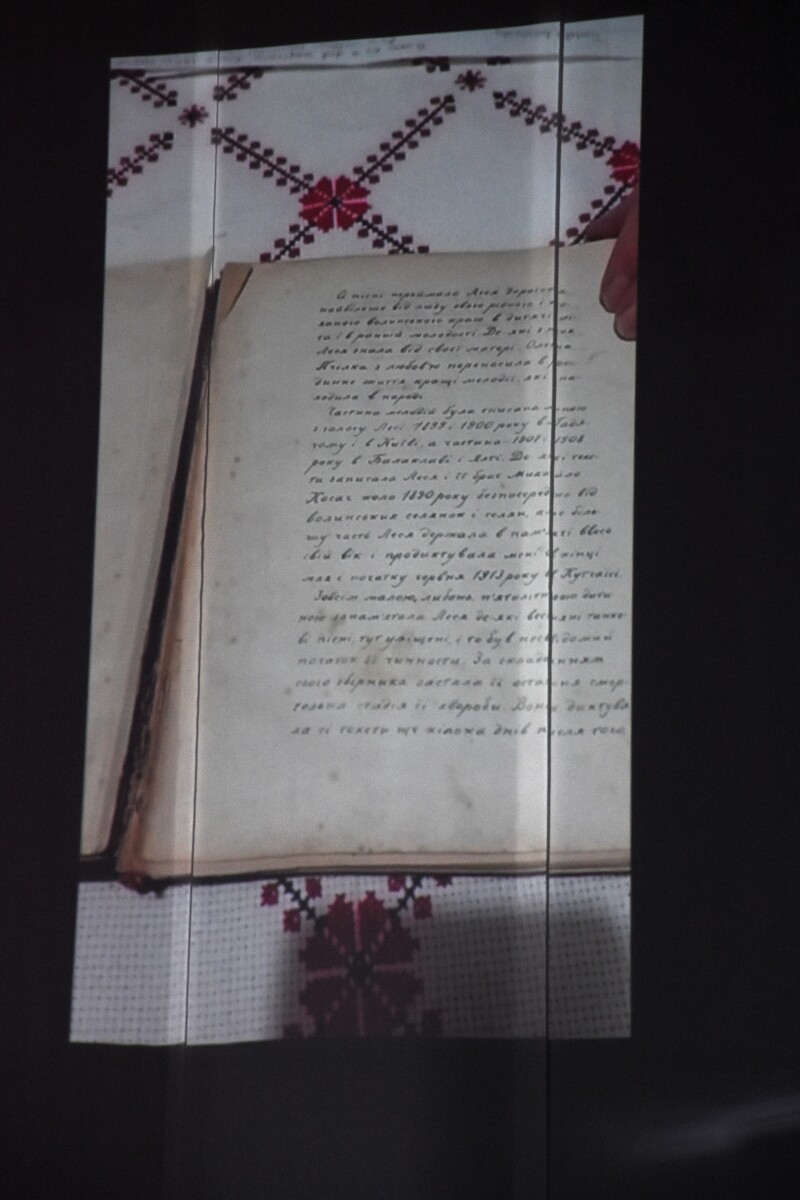 А пісні переймала Леся Українка
найбільше від люду свого рідного і ко-
ханого волинського краю в дитячі лі-
та і в ранній молодості. Де-які з них
Леся знала від своєї матері. Олена
Пчілка з любов'ю переносила в ро-
динне життя кращі мелодії, які на-
ходила в народі.
Частина мелодій була списана мною
з голосу Лесі 1899 і 1900 року в Гадя-
чому і в Київі, а частина 1907 і 1908
року в Балаклаві і Ялті. Де-які текс-
ти записала Леся і її брат Михайло
Косач коло 1890 року безпосередньо від
волинських селянок і селян, але біль-
шу часть Леся держала в пам'яті ввесь
свій вік і продиктувала мені в кінці
мая і початку червня 1913 року в Кутаїсі.
Зовсім малою, либонь, п'ятилітньою дити-
ною запам'ятала Леся де-які весняні танко-
ві пісні, тут уміщені, і то був несвідомий
початок її чинности. За складанням
свого збірника застала її остання смер-
тельна стадія її хвороби. Вона диктува-
ла ті тексти ще кілька днів після того,